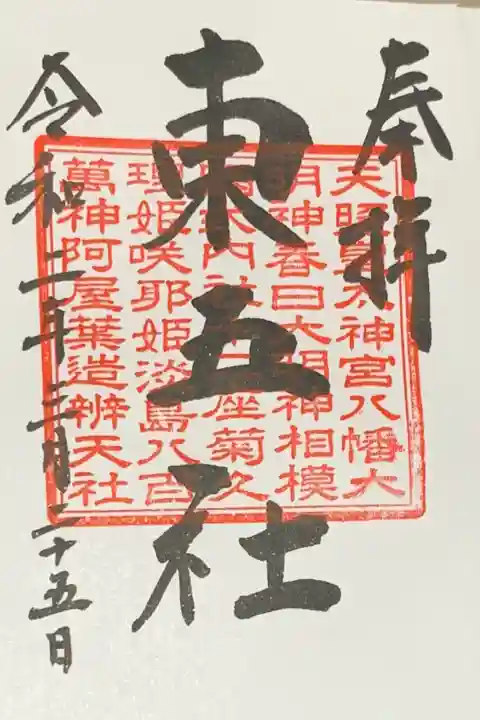 奉拝
東五社
令和二年三月二十五日
天照皇 神宮八幡大
明神春日大明神相模
式内社 座菊久
理姫咲耶姫淡島八百
萬神阿屋葉造辨天社